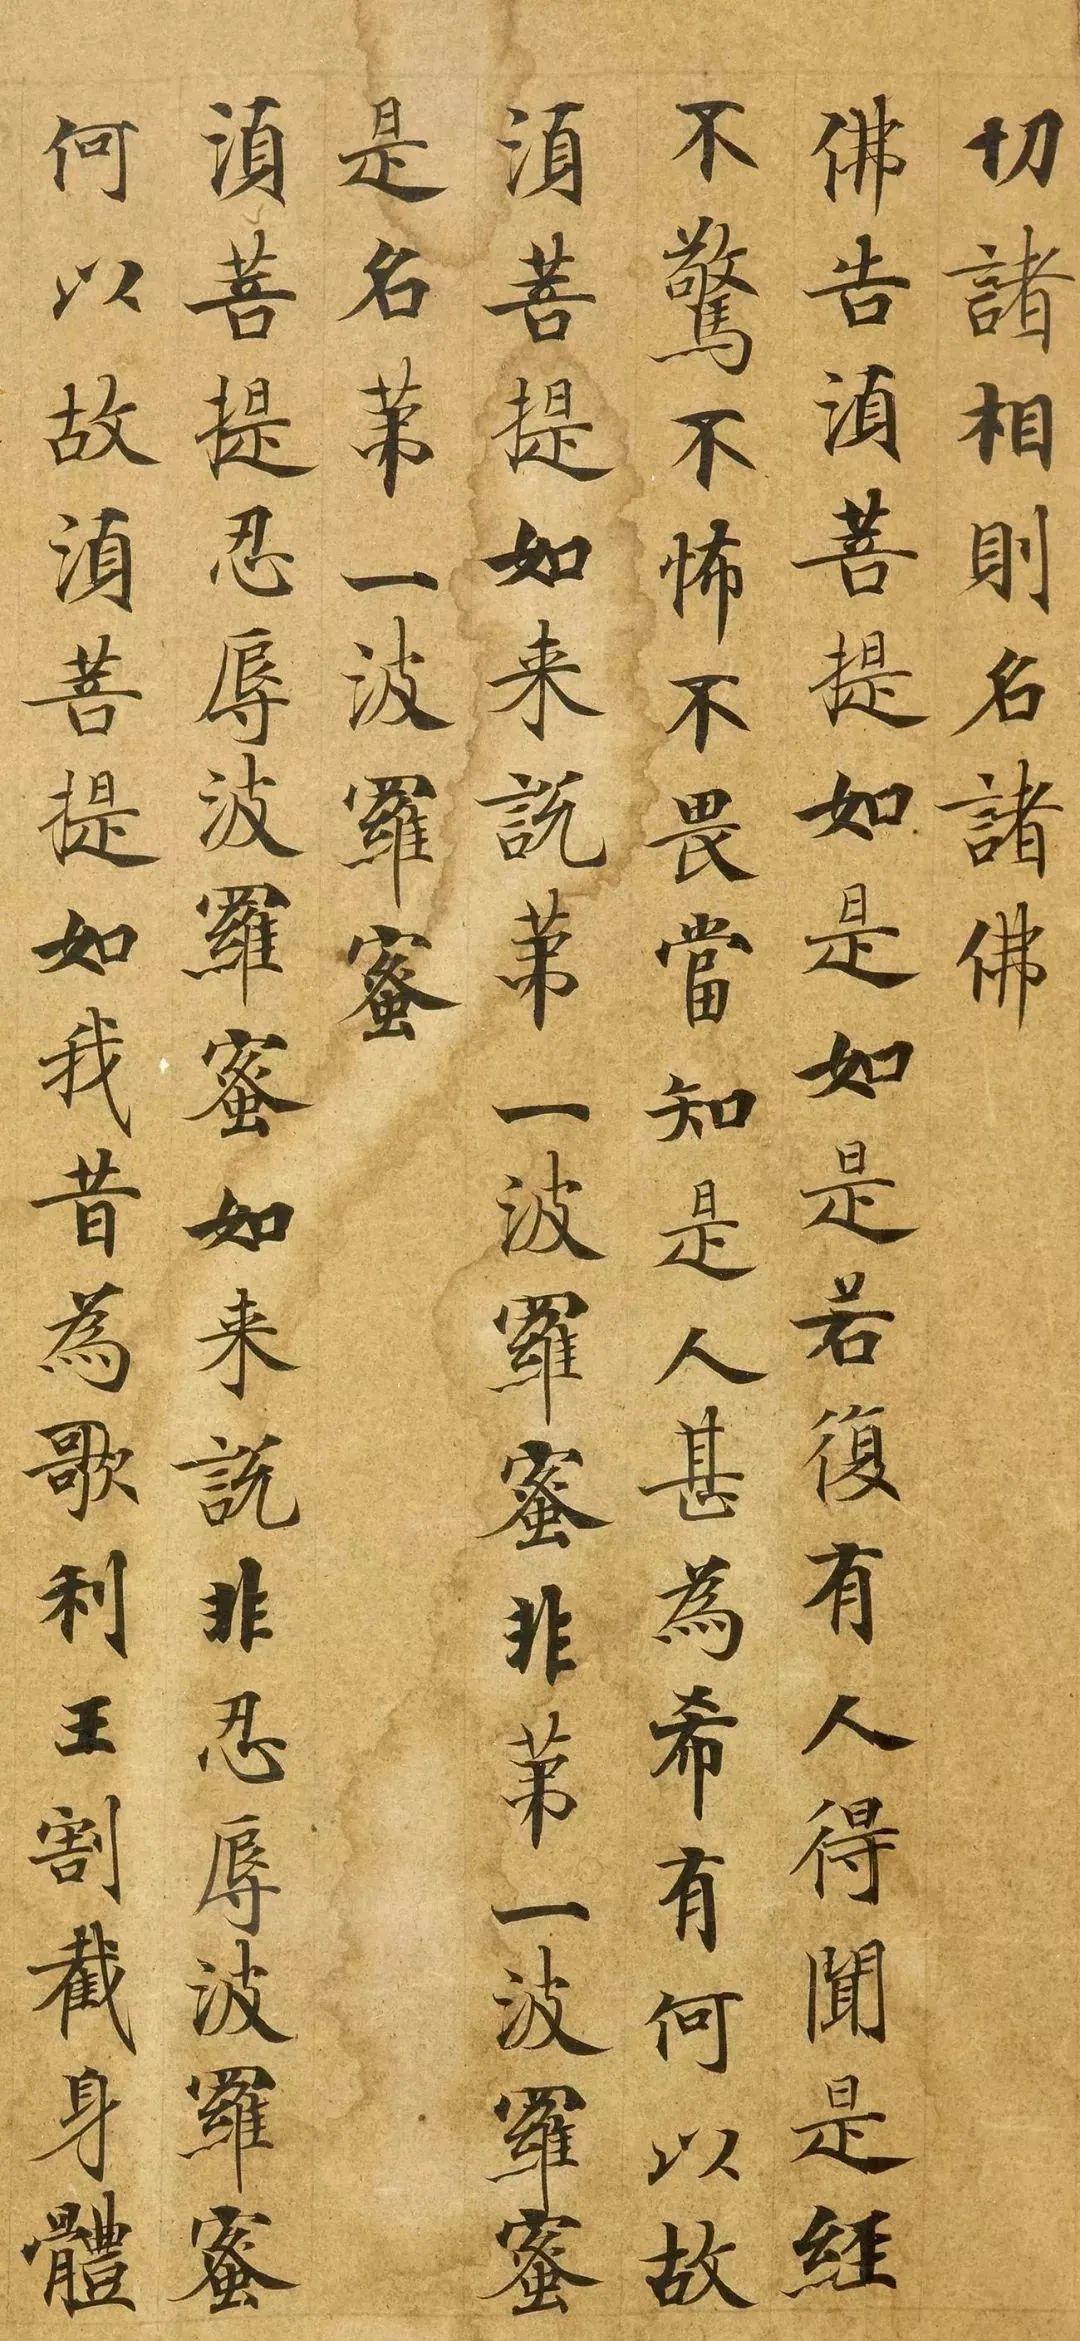 切諸相則名諸佛
佛告湏菩提如是如是若復有人得聞是経
不驚不怖不畏當知是人甚為希有何以故
湏菩提如来說苐一波羅蜜非苐一波羅蜜
是名苐一波羅蜜
湏菩提忍辱波羅蜜如来說非忍辱波羅蜜
何以故湏菩提如我昔為歌利王割截身體